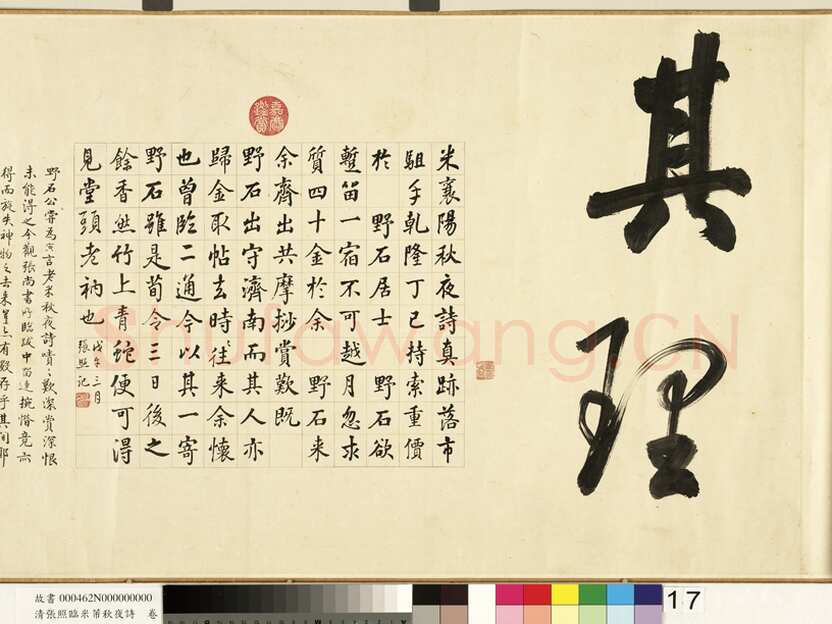 其理
米襄陽秋夜詩真跡落市
駔手乾隆丁巳持索重價
於 野石居士 野石欲
蹔留一宿不可越月忽求
質四十金於余 野石来
余齋出共摩挲賞歎既
野石出守濟南而其人亦
歸金取帖去時往来余懷
也曾臨二通今以其一寄
野石雖是荀令三日後之
餘香然竹上青蛇便可得
見堂頭老衲也
戊午三月
張照記
野石公嘗為余言老米秋夜詩嘖嘖歎潔賞深恨
未能得之今觀張尚書所臨跋中留連掩惜竟亦
得而旋失神物之去来豈亦有數存乎其間耶
嘉慶鑑賞
Shufawang.CN
故書 000462N000000000
清張照臨米芾秋夜詩 卷
17